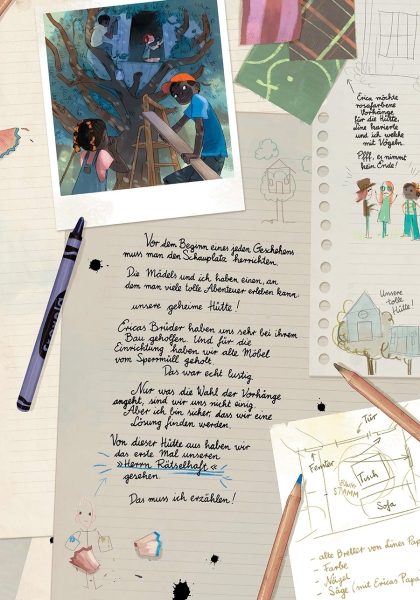 Erica möchte
rosafarbene
Vorhänge
für die Hütte,
Line karierte
und ich welche
mit Vögeln.
Pfff, es nimmt
kein Ende!
Vor dem Beginn eines jeden Geschehens
muss man den Schauplatz herrichten.
Die Mädels und ich haben einen, an
dem man viele tolle Abenteuer erleben kann:
unsere geheime Hütte!
Ericas Brüder haben uns sehr bei ihrem
Bau geholfen. Und für die
Einrichtung haben wir alle Möbel
vom Sperrmüll geholt.
Das war echt lustig.
Nur was die Wahl der Vorhänge
angeht, sind wir uns nicht einig.
Aber ich bin sicher, dass wir eine
Lösung finden werden.
Von dieser Hütte aus haben wir
das erste Mal unseren
»Herrn Rätselhaft«
gesehen.
Das muss ich erzählen!
Unsere
tolle
Hütte!
Tür
Fenster
Tisch
STAMM
Sofa
- alte Bretter von Lines Pap
- Farbe
- Nägel
- Säge (mit Ericas Papa